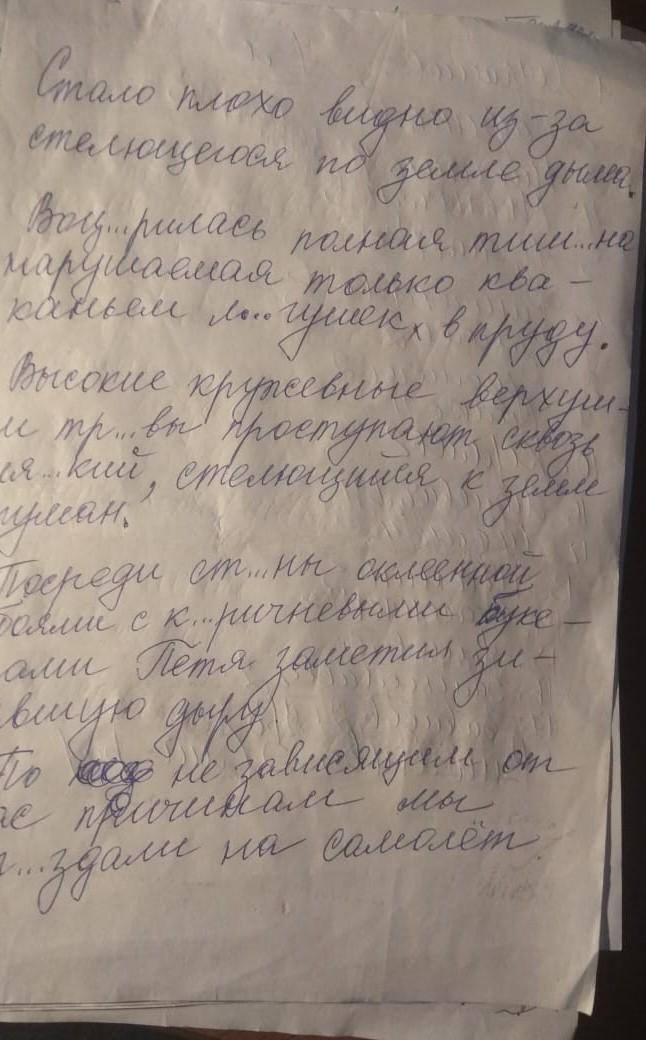 Стало плохо видно из-за
стелющегося по земле дыма.
Воц...рилась полная тиш...на
нарушаемая только ква-
каньем л...гушек, в пруду.
Высокие кружевные верхуш-
и тр...вы проступают сквозь
ся...кий, стелющийся к земле
туман.
Посреди ст...ны оклеенной
боями с к...ричневыми буке-
ами Петя заметил зи-
вшую дыру
По не зависящим от
ас причинам мы
п...здали на самолёт